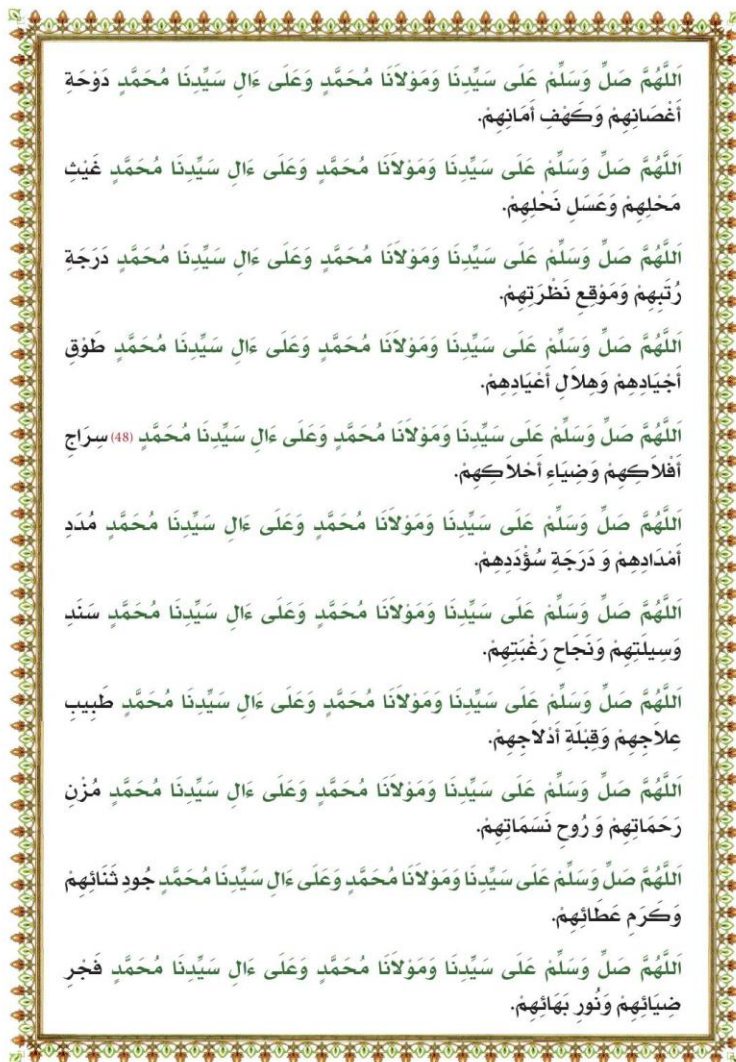 اَللَّهُمَّ صَلِّ وَسَلِّمْ عَلَى سَيِّدِنَا وَمَوْلَانَا مُحَمَّدٍ وَعَلَى ءَالِ سَيِّدِنَا مُحَمَّدٍ دَوْحَةِ
أَغْصَانِهِمْ وَكَهْفِ أَمَانِهِمْ.
اَللَّهُمَّ صَلِّ وَسَلِّمْ عَلَى سَيِّدِنَا وَمَوْلَانَا مُحَمَّدٍ وَعَلَى ءَالِ سَيِّدِنَا مُحَمَّدٍ غَيْثِ
مَحْلِهِمْ وَعَسَلِ نَحْلِهِمْ.
اَللَّهُمَّ صَلِّ وَسَلِّمْ عَلَى سَيِّدِنَا وَمَوْلَانَا مُحَمَّدٍ وَعَلَى ءَالِ سَيِّدِنَا مُحَمَّدٍ دَرَجَةِ
رُتَبِهِمْ وَمَوْقِعِ نَظْرَتِهِمْ.
اَللَّهُمَّ صَلِّ وَسَلِّمْ عَلَى سَيِّدِنَا وَمَوْلَانَا مُحَمَّدٍ وَعَلَى ءَالِ سَيِّدِنَا مُحَمَّدٍ طَوْقِ
أَجْيَادِهِمْ وَهِلَالِ أَعْيَادِهِمْ.
اَللَّهُمَّ صَلِّ وَسَلِّمْ عَلَى سَيِّدِنَا وَمَوْلَانَا مُحَمَّدٍ وَعَلَى ءَالِ سَيِّدِنَا مُحَمَّدٍ (48) سِرَاجِ
أَفْلَاكِهِمْ وَضِيَاءِ أَحْلَاكِهِمْ.
اَللَّهُمَّ صَلِّ وَسَلِّمْ عَلَى سَيِّدِنَا وَمَوْلَانَا مُحَمَّدٍ وَعَلَى ءَالِ سَيِّدِنَا مُحَمَّدٍ مُدَدِ
أَمْدَادِهِمْ وَ دَرَجَةِ سُؤْدَدِهِمْ.
اَللَّهُمَّ صَلِّ وَسَلِّمْ عَلَى سَيِّدِنَا وَمَوْلَانَا مُحَمَّدٍ وَعَلَى ءَالِ سَيِّدِنَا مُحَمَّدٍ سَنَدِ
وَسِيلَتِهِمْ وَنَجَاحِ رَغْبَتِهِمْ.
اَللَّهُمَّ صَلِّ وَسَلِّمْ عَلَى سَيِّدِنَا وَمَوْلَانَا مُحَمَّدٍ وَعَلَى ءَالِ سَيِّدِنَا مُحَمَّدٍ طَبِيبِ
عِلَاجِهِمْ وَقِبْلَةِ أَدْلَاجِهِمْ.
اَللَّهُمَّ صَلِّ وَسَلِّمْ عَلَى سَيِّدِنَا وَمَوْلَانَا مُحَمَّدٍ وَعَلَى ءَالِ سَيِّدِنَا مُحَمَّدٍ مُزْنِ
رَحَمَاتِهِمْ وَ رُوحِ نَسَمَاتِهِمْ.
اَللَّهُمَّ صَلِّ وَسَلِّمْ عَلَى سَيِّدِنَا وَمَوْلَانَا مُحَمَّدٍ وَعَلَى ءَالِ سَيِّدِنَا مُحَمَّدٍ جُودِ ثَنَائِهِمْ
وَكَرَمِ عَطَائِهِمْ.
اَللَّهُمَّ صَلِّ وَسَلِّمْ عَلَى سَيِّدِنَا وَمَوْلَانَا مُحَمَّدٍ وَعَلَى ءَالِ سَيِّدِنَا مُحَمَّدٍ فَجْرِ
ضِيَائِهِمْ وَنُورِ بَهَائِهِمْ.